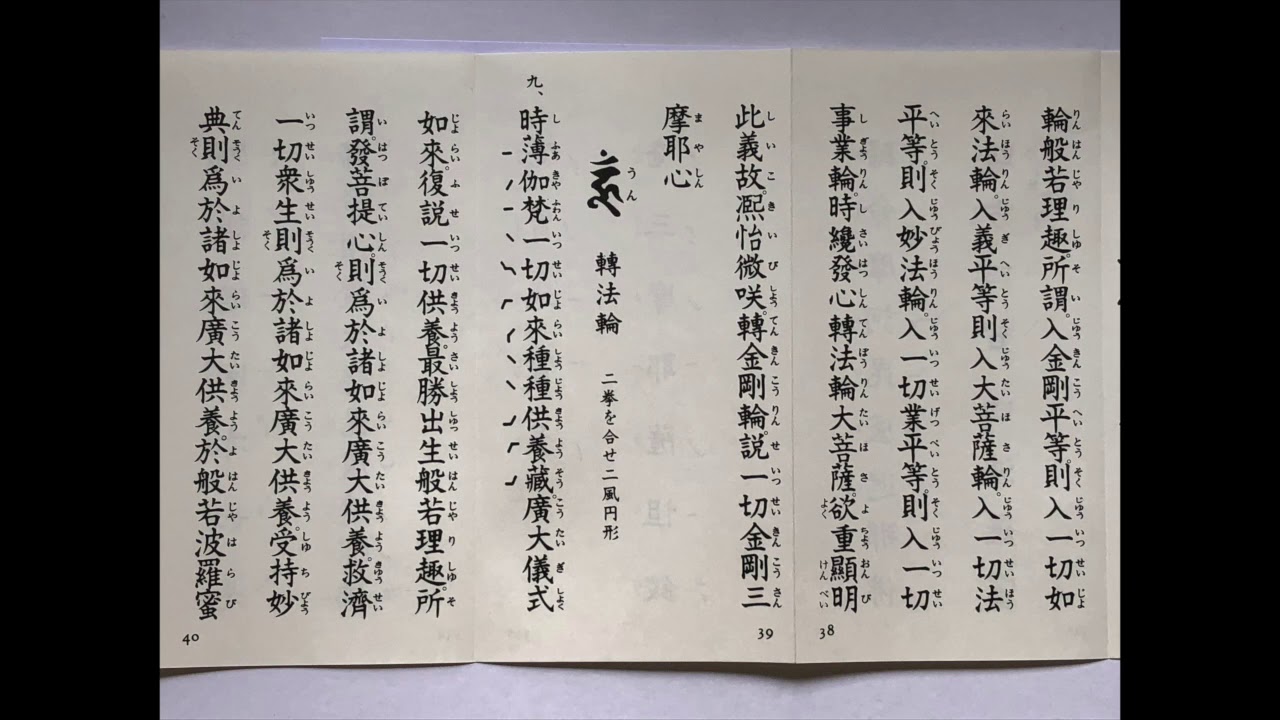 輪般若理趣所謂入金剛平等則入一切如
來法輪入義平等則入大菩薩輪入一切法
平等則入妙法輪入一切業平等則入一切
事業輪時纔發心轉法輪大菩薩欲重顯明
38
此義故凞怡微咲轉金剛輪説一切金剛三
摩耶心
うん 轉法輪 二拳を合せ二風円形
九、時薄伽梵一切如來種種供養藏廣大儀式
39
如來復説一切供養最勝出生般若理趣所
謂發菩提心則爲於諸如來廣大供養救濟
一切衆生則爲於諸如來廣大供養受持妙
典則爲於諸如來廣大供養於般若波羅蜜
40